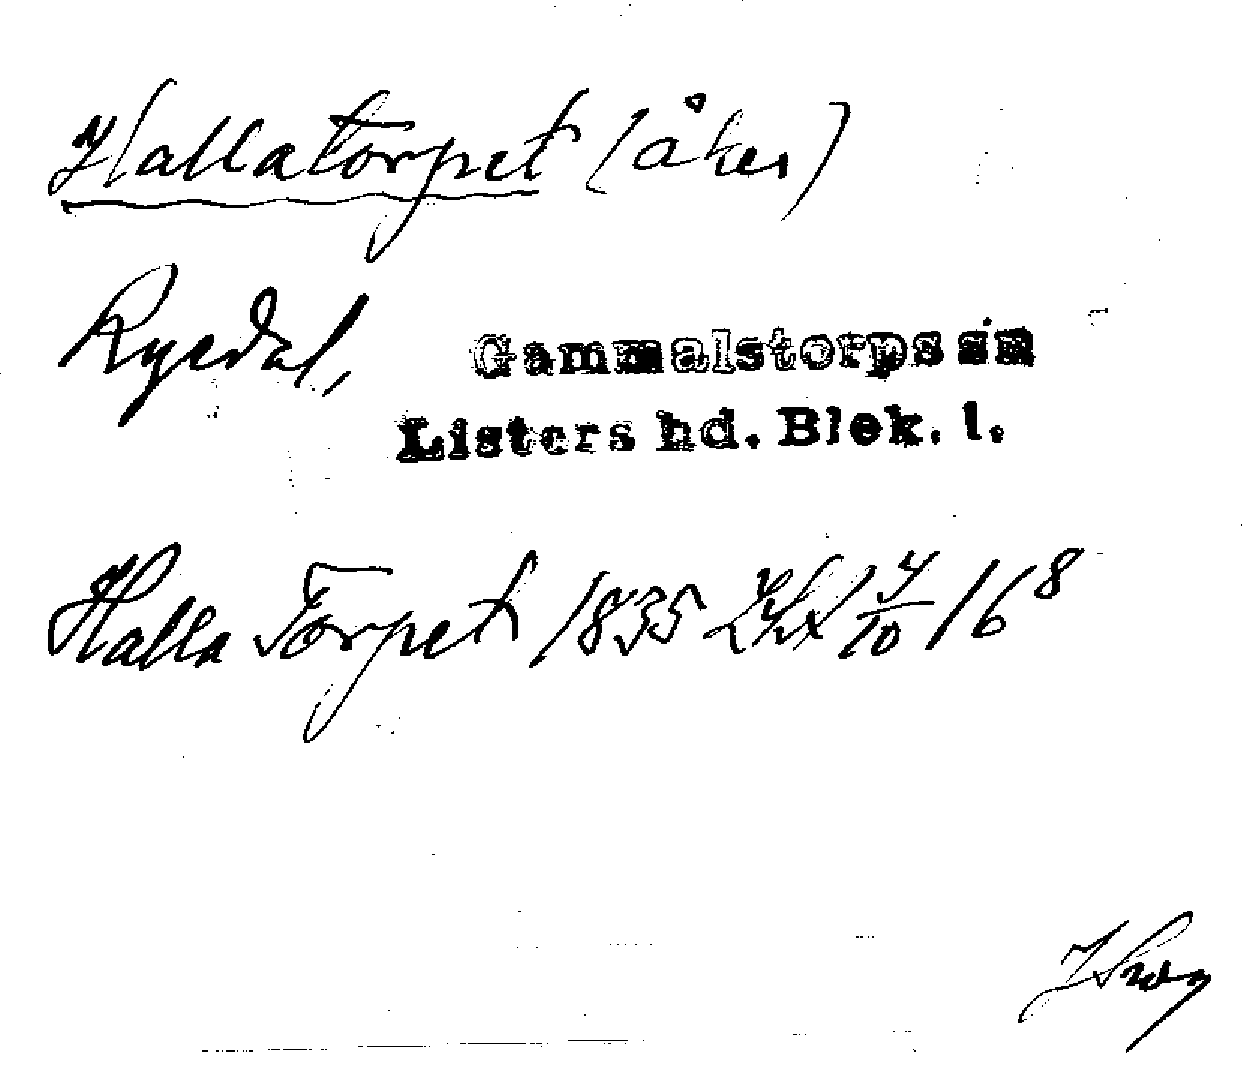 Hallatorpet (åker)
Ryedal, Gammalstorps sn
Listers hd. Blek. l.
Halla Torpet 1835 Lskt 4/10 16⁸